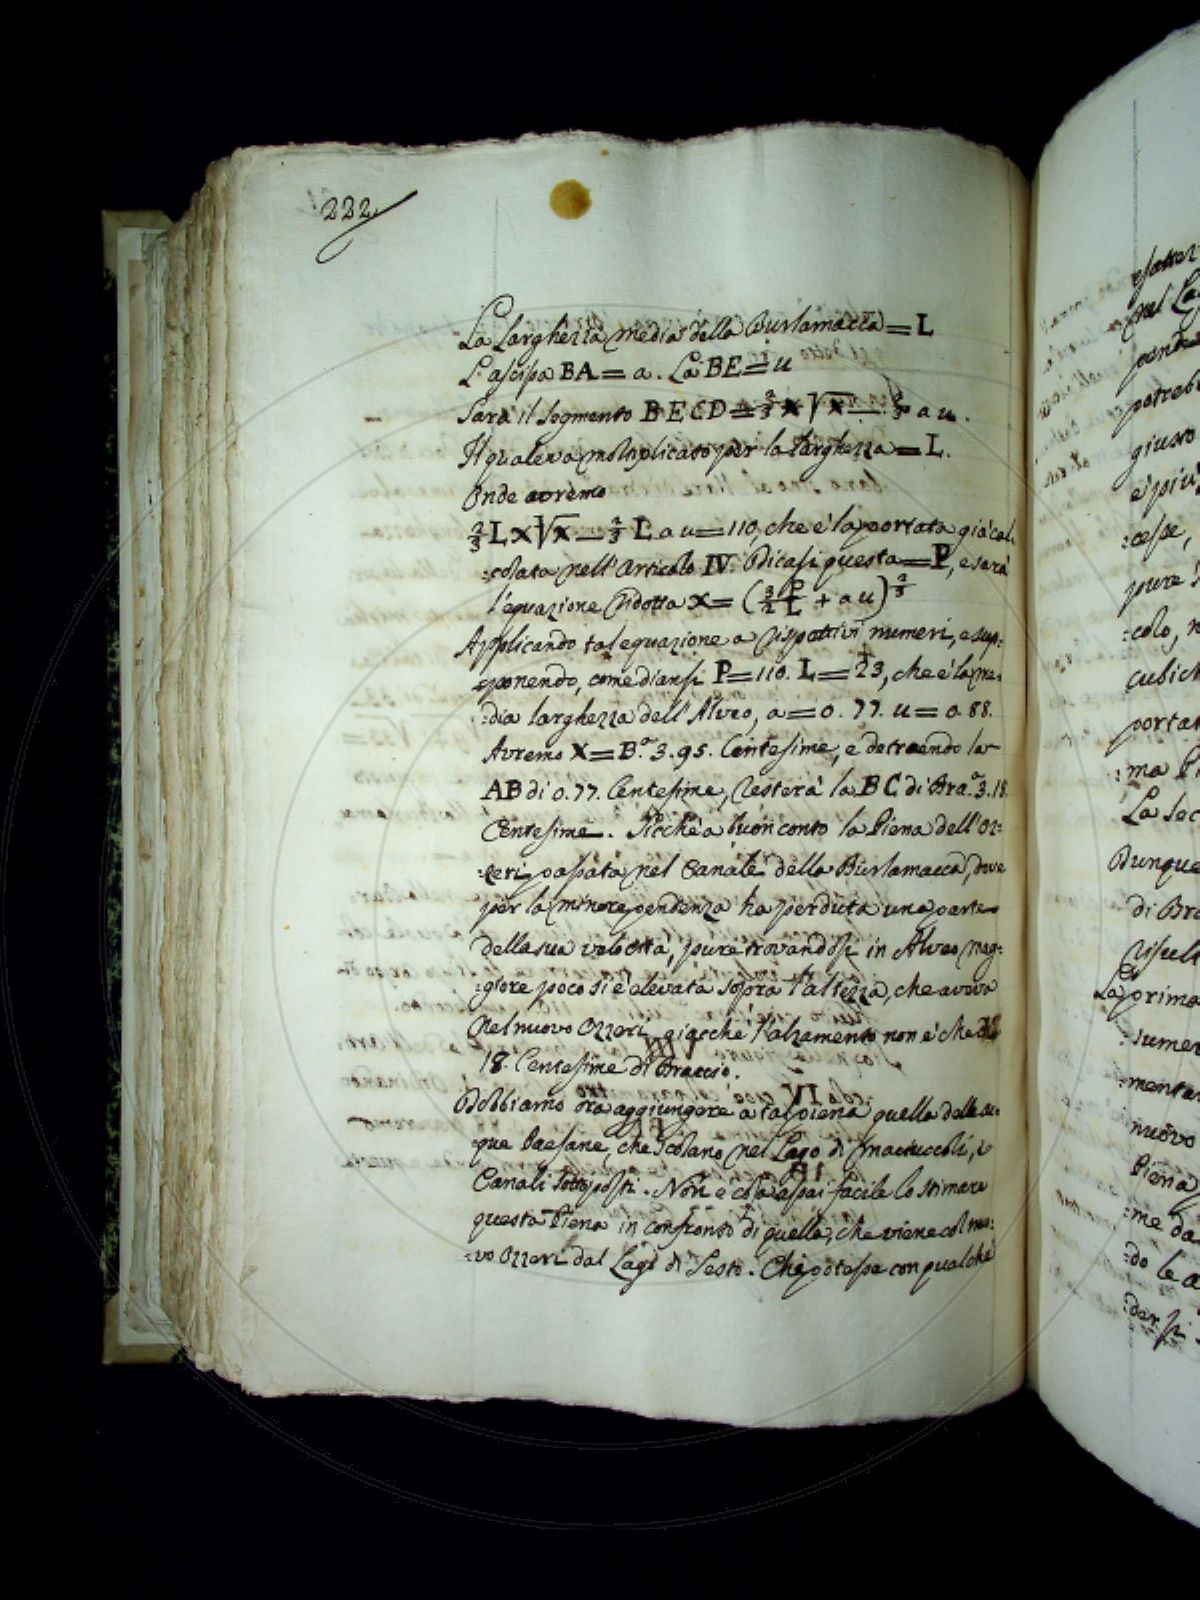 222.
La larghezza media della Burlamacca = L
L'ascissa BA = a. La BE = u
Sarà il segmento BECD = 2/3 x √x — 2/3 a u.
Il quale va moltiplicato per la larghezza = L.
Onde avremo
2/3 L x √x — 2/3 L a u = 110, che è la portata già cal-
:colata nell'Articolo IV. Dicasi questa = P, e sarà
l'equazione ridotta x = (3/2 P/L + a u)^2/3
Applicando tal equazione a rispettivi numeri, e sup:
:ponendo, come diansi P = 110. L = 23, che è la me:
:dia larghezza dell'Alveo, a = 0.77. u = 0.88.
Avremo X = B.a 3.95. Centesime, e detraendo la
AB di 0.77. Centesime, resterà la BC di Bra.a 3.18
Centesime. Sicchè a buon conto la Piena dell'Oz:
:zeri passata nel Canale della Burlamacca, dove
per la minore pendenza ha perduta una parte
della sua velocità, pure trovandosi in Alveo mag:
:giore poco si è elevata sopra l'altezza, che aveva
nel nuovo Ozzeri, giacchè l'alzamento non è che di
18. Centesime di Braccio.
Dobbiamo ora aggiungere a tal piena quella delle ac:
:que Paesane, che scolano nel Lago di Maciuccoli, e
Canali sottoposti. Non è cosa assai facile lo stimare
questa Piena in confronto di quella, che viene col nuo:
:vo Ozzeri dal Lago di Sesto. Chi potesse con qualche
esattez
nel La
pende
potreb
giusto
e più
:cesse,
pure
:colo, n
cubich
portat
:ma Pi
La Sec
Dunque
di Bra
risult
La prima
:sumer
:menta
nuovo
Piena
:me da
:do le a
:dar si